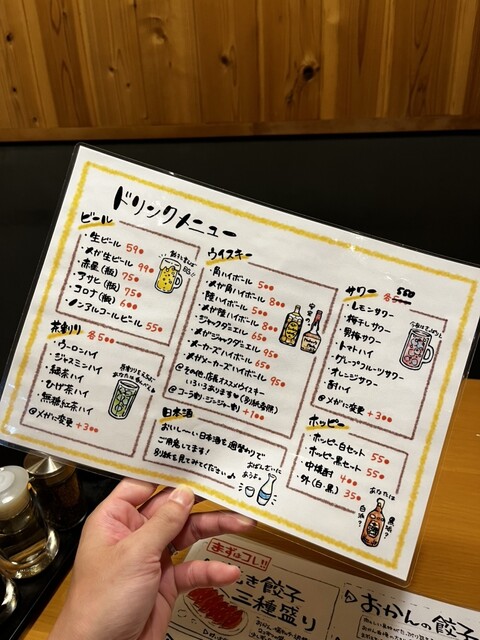 ドリンクメニュー
ビール
・生ビール 590
・メガ生ビール 990
・赤星(瓶) 750
・アサヒ(瓶) 750
・コロナ(瓶) 600
・ノンアルコールビール 550
茶割り 各500
・ウーロンハイ
・ジャスミンハイ
・緑茶ハイ
・ひげ茶ハイ
・無糖紅茶ハイ
@メガに変更 +300
ウイスキー
・角ハイボール 500
・メガ角ハイボール 800
・陸ハイボール 500
・メガ陸ハイボール 800
・ジャックダニエル 650
・メガジャックダニエル 950
・メーカーズハイボール 650
・メガメーカーズハイボール 950
@その他、店長オススメウイスキー
いろいろあります♥(別紙参照)
@コーラ割・ジンジャー割 +100
日本酒
おいしーい日本酒を週替わりで
ご用意してます!
別紙を見てみてください♪
おばんざいに
あうよ。
サワー 各550
・レモンサワー
・梅干しサワー
・男梅サワー
・トマトハイ
・グレープフルーツサワー
・オレンジサワー
・酎ハイ
@メガに変更 +300
ホッピー
・ホッピー白セット 550
・ホッピー黒セット 550
・中焼酎 400
・外(白・黒) 350
あなたは
白派?
黒派?
まずはコレ!!
き餃子
三種盛り
おかんの餃子